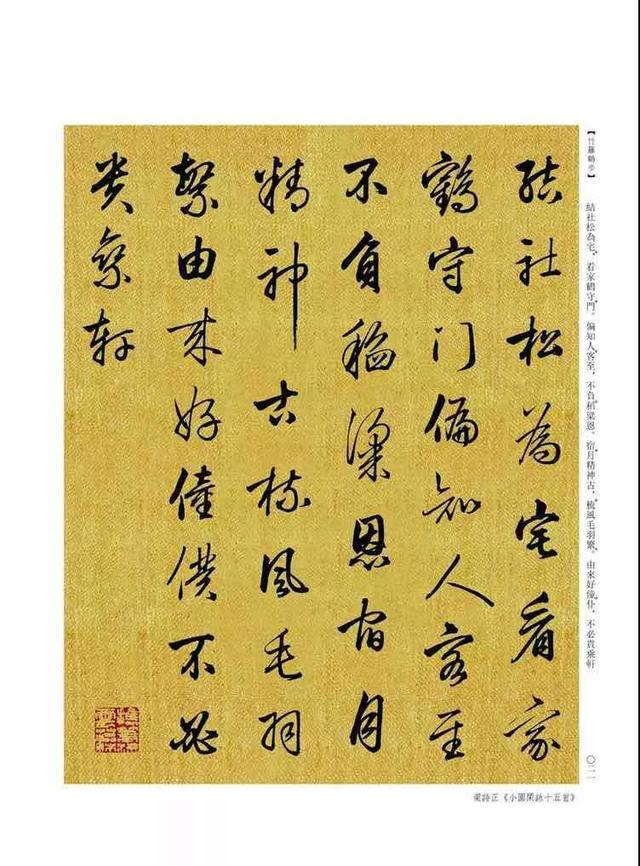 结社松为宅看家
鹤守门偏知人客至
不负稻粱恩宿月
精神古梳风毛羽
繁由来好僮仆不必
贵乘轩
【竹籬鶴步】
結社松為宅，看家鶴守門。偏知人客至，不負稻梁恩。宿月精神古，梳風毛羽繁。由來好僮仆，不必貴乘軒
〇二一
梁詩正《小園閑詠十五首》